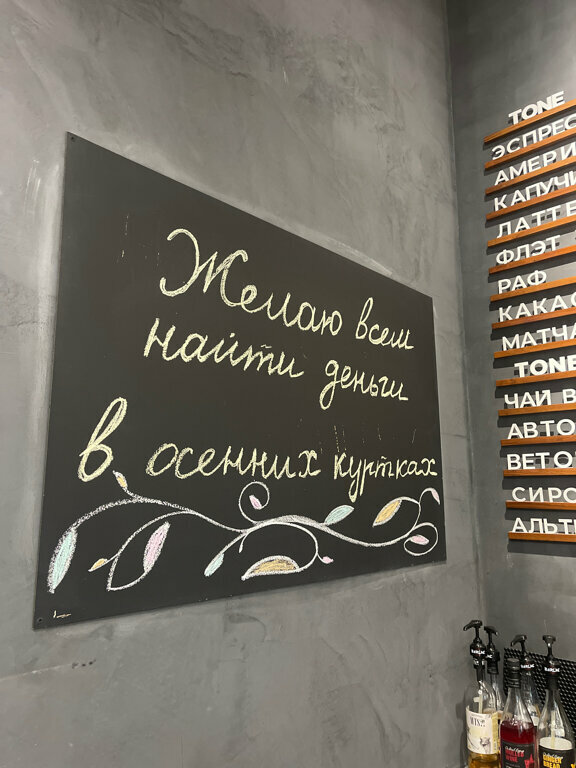 Желаю всем
найти деньги
в осенних куртках
TONE
ЭСПРЕС
АМЕРИ
КАПУЧИ
ЛАТТЕ
ФЛЭТ
РАФ
КАКАО
МАТЧА
TONE
ЧАЙ В
АВТО
ВЕТО
СИРО
АЛЬТ